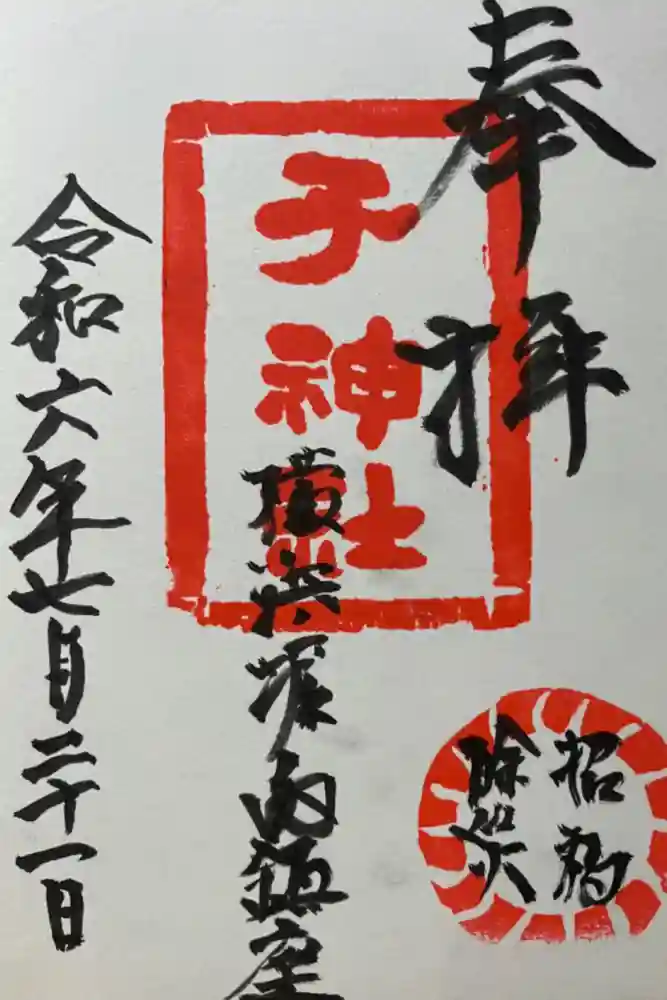 奉拝
子神社
横浜堀内鎮座
招福
除災
令和六年七月二十一日